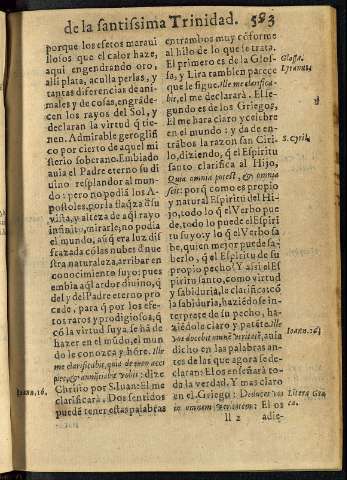 de la santissima Trinidad. 583
porque los efetos maraui
llosos que el calor haze,
aqui engendrando oro,
alli plata, aculla perlas, y
tantas diferencias de ani-
males y de cosas, engrãde-
cen los rayos del Sol, y
declaran la virtud q̃ tie-
nen. Admirable geroglifi
co por cierto de aquel mi
sterio soberano. Embiado
auia el Padre eterno su di
uino resplandor al mun-
do: pero no podiã los A-
postoles, por la flaq̃za d̃ su
vista, y alteza de aq̃l rayo
infinito, mirarle; no podia
el mundo, aũq̃ era luz dis
frazada cõ las nubes d̃ nue
stra naturaleza, arribar en
conocimiento suyo: pues
embia aq̃l ardor diuino, q̃
del y del Padre eterno pro
cede, para q̃ por los efe-
tos raros y prodigiosos, q̃
cõ la virtud suya se hã de
hazer en el mũdo, el mun
do le conozca y hõre. Ille
me clarificabit, quia de meo acci
piet, & annũciabit vobis: dize
Christo por S. Iuan: El me
clarificará. Dos sentidos
puedẽ tener estas palabras
Ioann. 16.
entrambos muy cõforme
al hilo de lo que se trata.
El primero es de la Glos-
sa, y Lira tambien parece
que le sigue. Ille me clarifica-
bit, el me declarará. El se-
gundo es de los Griegos,
El me hara claro y celebre
en el mundo: y da de en-
trãbos la razon san Ciri-
lo, diziendo, q̃ el Espiritu
santo clarificó al Hijo,
Quia omnia potest, & omnia
scit: porq̃ como es propio
y natural Espiritu del Hi-
jo, todo lo q̃ el Verbo pue
de, todo lo puede el Espiri
tu suyo: y lo q̃ el Verbo sa
be, quien mejor puede sa-
berlo, q̃ el Espiritu de su
propio pecho? Y assi el Es
piritu santo, como virtud
y sabiduria, le clarificó cõ
la sabiduria, haziẽdose in-
terprete de su pecho, ha-
ziẽdole claro y patẽte. Ille
vos docebit omnẽ veritatẽ, auia
dicho en las palabras an-
tes de las que agora se de-
claran: El os enseñará to-
da la verdad. Y mas claro
en el Griego: Deducet vos
in omnem veritatem: El os
Glossa.
Lyranus.
S. Cyril.
Ioann. 16.
Litera Græ
ca.
ll 2 adie-